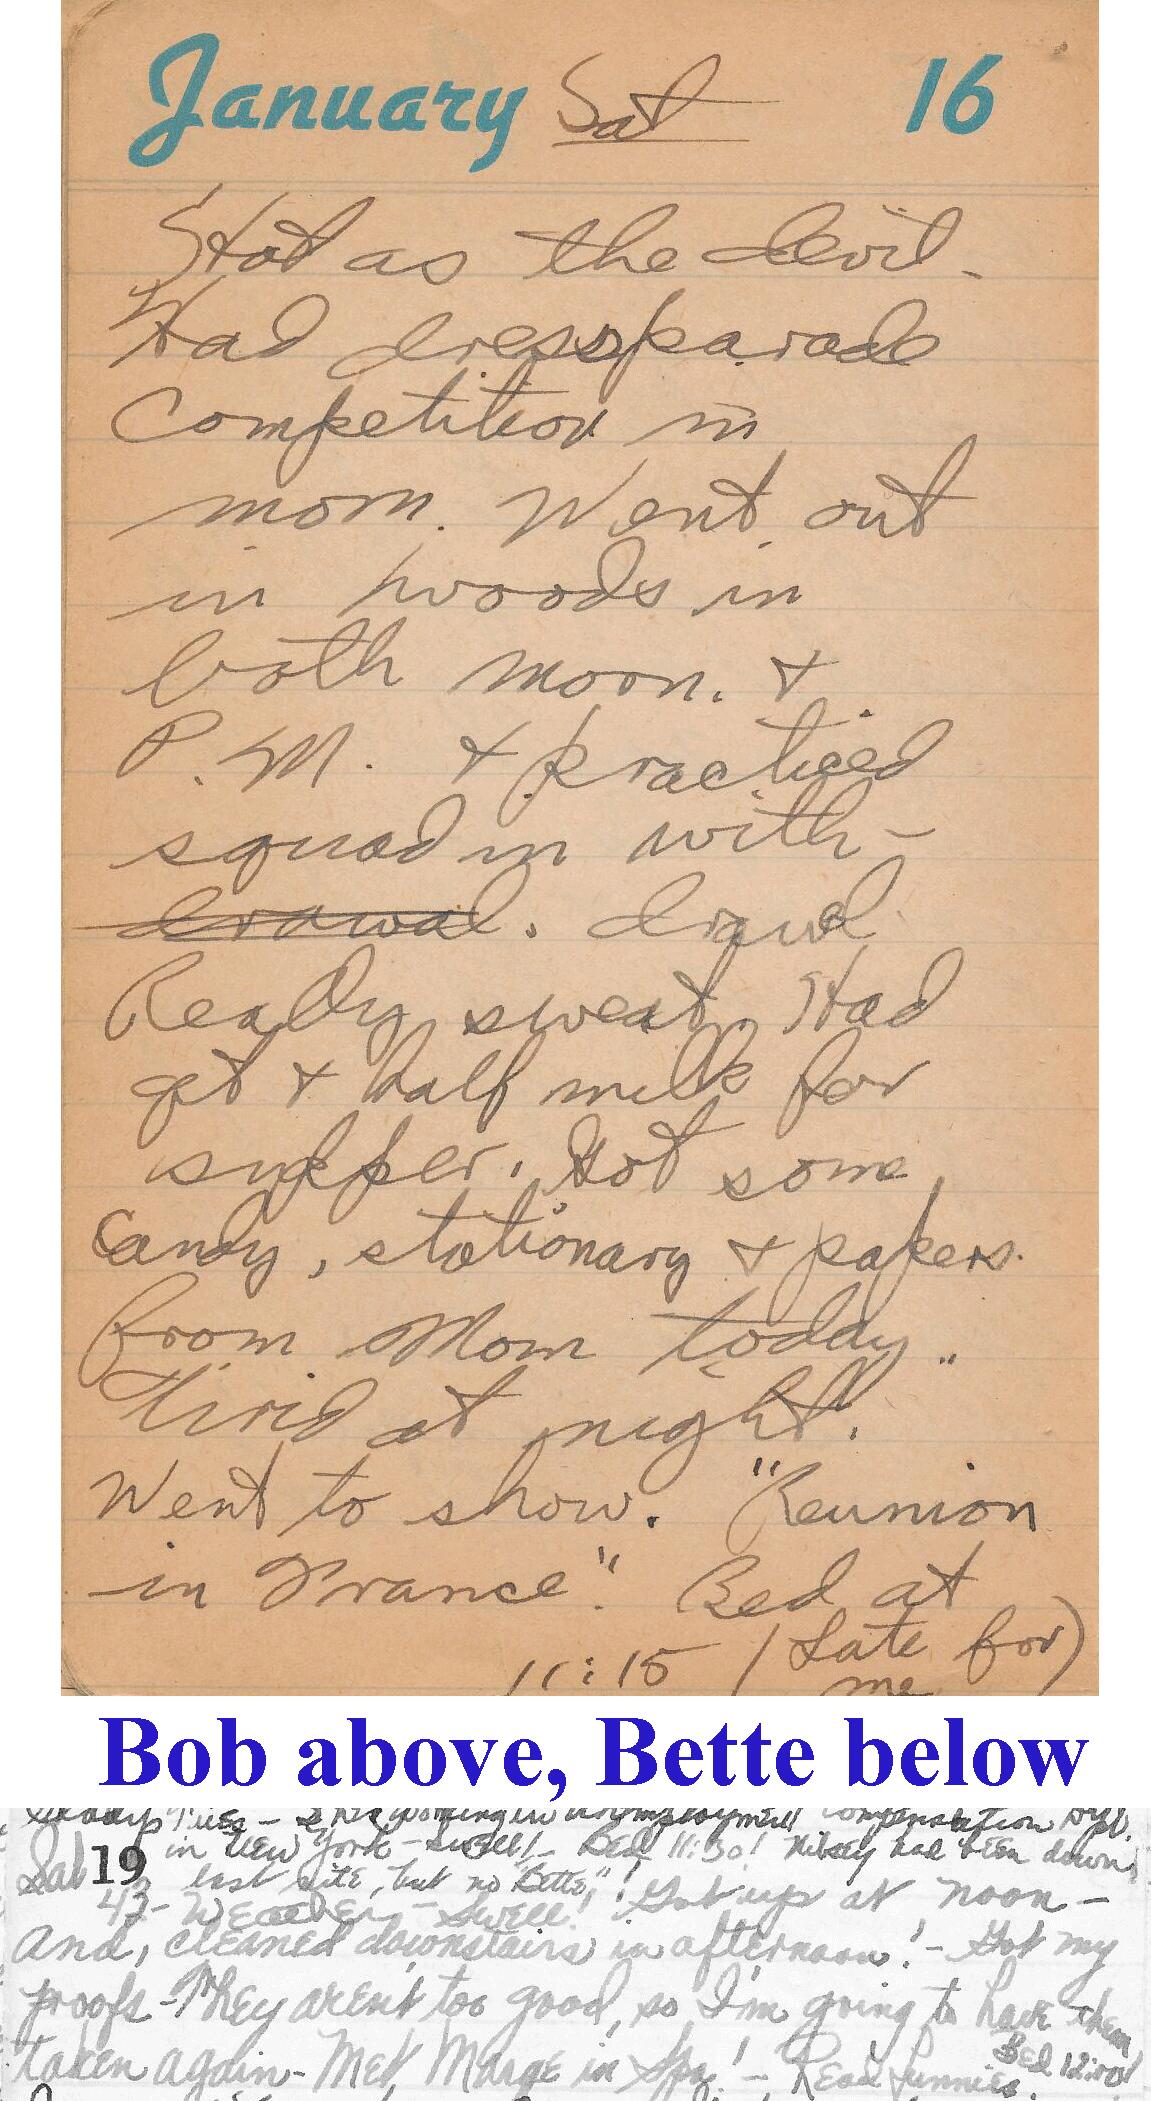 January Sat 16
Hot as the devil.
Had dress parade
Competition in
morn. Went out
in woods in
both morn. +
P.M. + practiced
squad in with-
drawal. drawl
Really sweat. Had
qt + half milk for
supper. Got some
Candy, stationary + papers
from Mom today.
Tired at night.
Went to show. "Reunion
in France". Bed at
11:15 (Late for)
me
Bob above, Bette below
compensation
in New York - swell! - Bed 11:30! had been down
Sat 19 last nite, but no "Bette"!
43 - Weather - swell! Got up at noon -
And, cleaned downstairs in afternoon! - Got my
proofs - They aren't too good, so I'm going to have them
taken again - Met Marge in Spa! - Read funnies.
Bed 12:00!